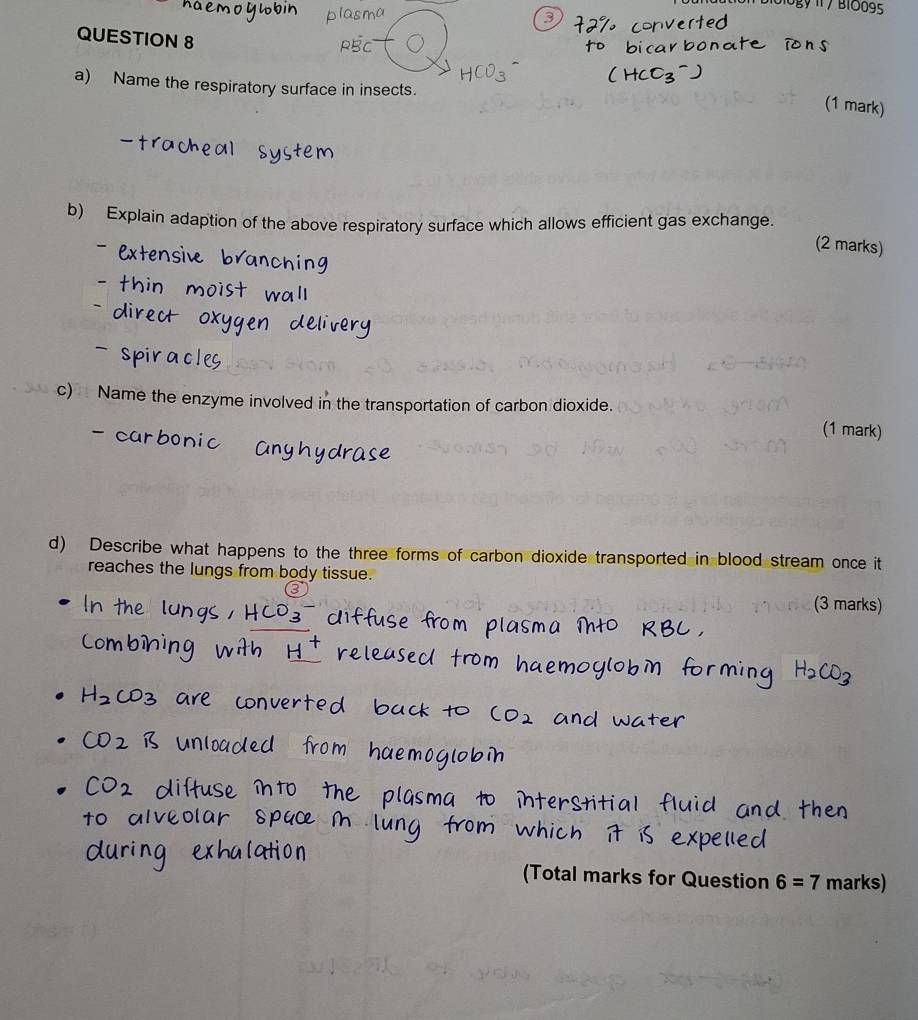 haemoglobin
plasma
RBC
HCO3⁻
③ 72% converted
to bicarbonate ions
(HCO3⁻)
/ BIO095
QUESTION 8
a) Name the respiratory surface in insects.
(1 mark)
- tracheal system
b) Explain adaption of the above respiratory surface which allows efficient gas exchange.
(2 marks)
- extensive branching
- thin moist wall
- direct oxygen delivery
- spiracles
c) Name the enzyme involved in the transportation of carbon dioxide.
(1 mark)
- carbonic anyhydrase
d) Describe what happens to the three forms of carbon dioxide transported in blood stream once it
reaches the lungs from body tissue.
(3 marks)
③
• In the lungs, HCO3⁻ diffuse from plasma into RBC,
combining with H⁺ released from haemoglobin forming H2CO3
• H2CO3 are converted back to CO2 and water
• CO2 is unloaded from haemoglobin
• CO2 diffuse into the plasma to interstitial fluid and then
to alveolar space in lung from which it is expelled
during exhalation
(Total marks for Question 6 = 7 marks)